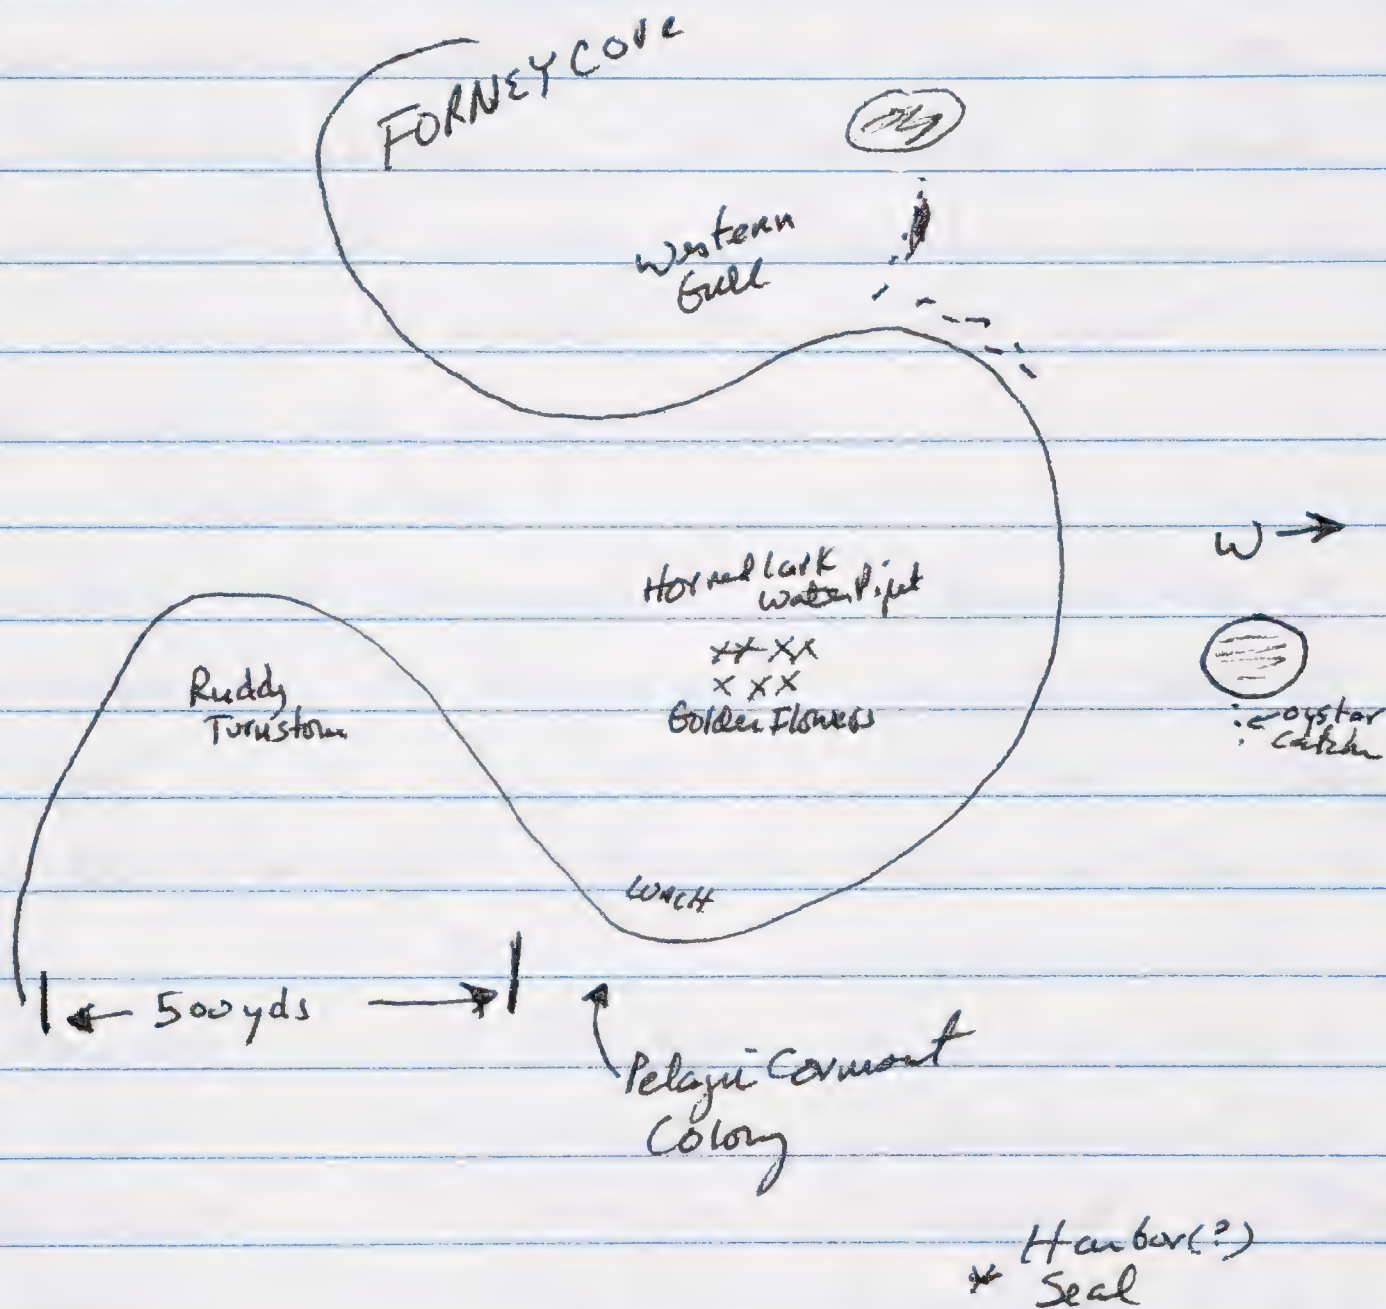 FORNEY COVE
Western
Gull
W
Horned Lark
Water Pipit
xx xx
x xx
Golden Flowers
Ruddy
Turnstone
oyster
catcher
LUNCH
500 yds
Pelagic Cormorant
Colony
Harbor(?)
* Seal